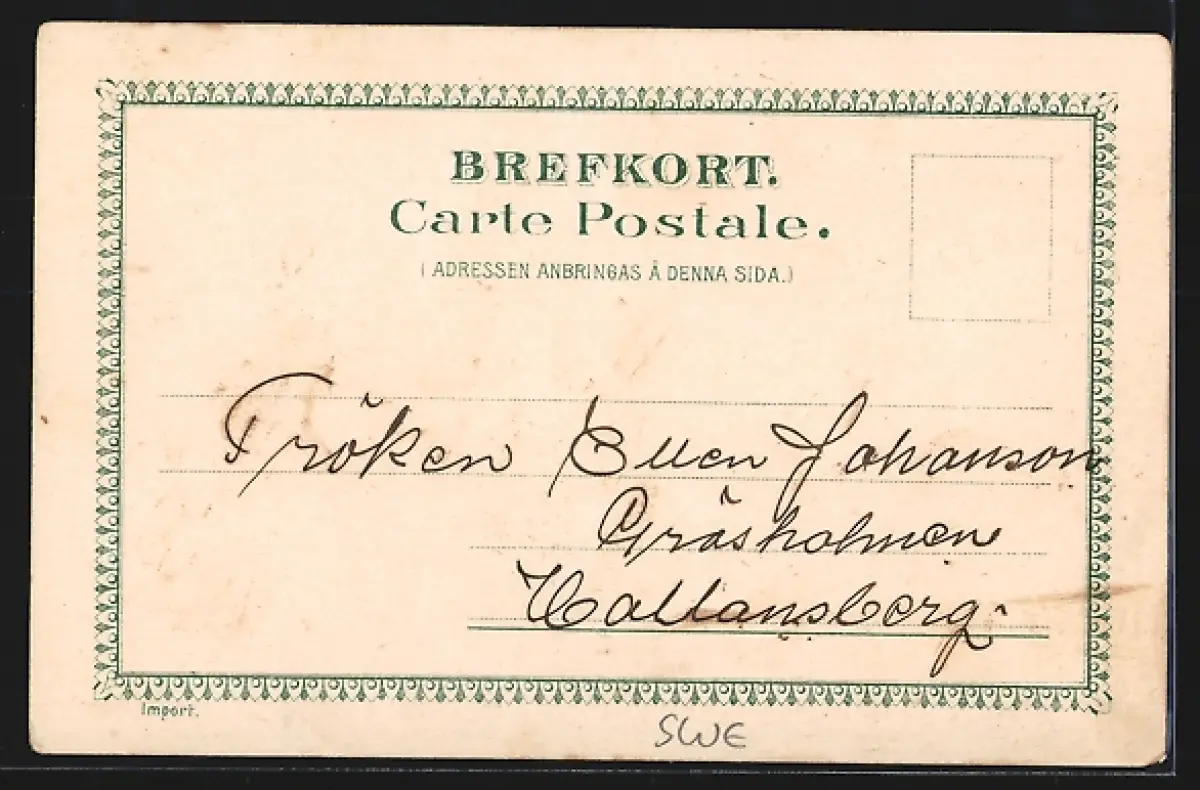 BREFKORT.
Carte Postale.
(ADRESSEN ANBRINGAS Å DENNA SIDA.)
Fröken Ellen Johanson
Gräsholmen
Hallansberg.
Import.
SWE